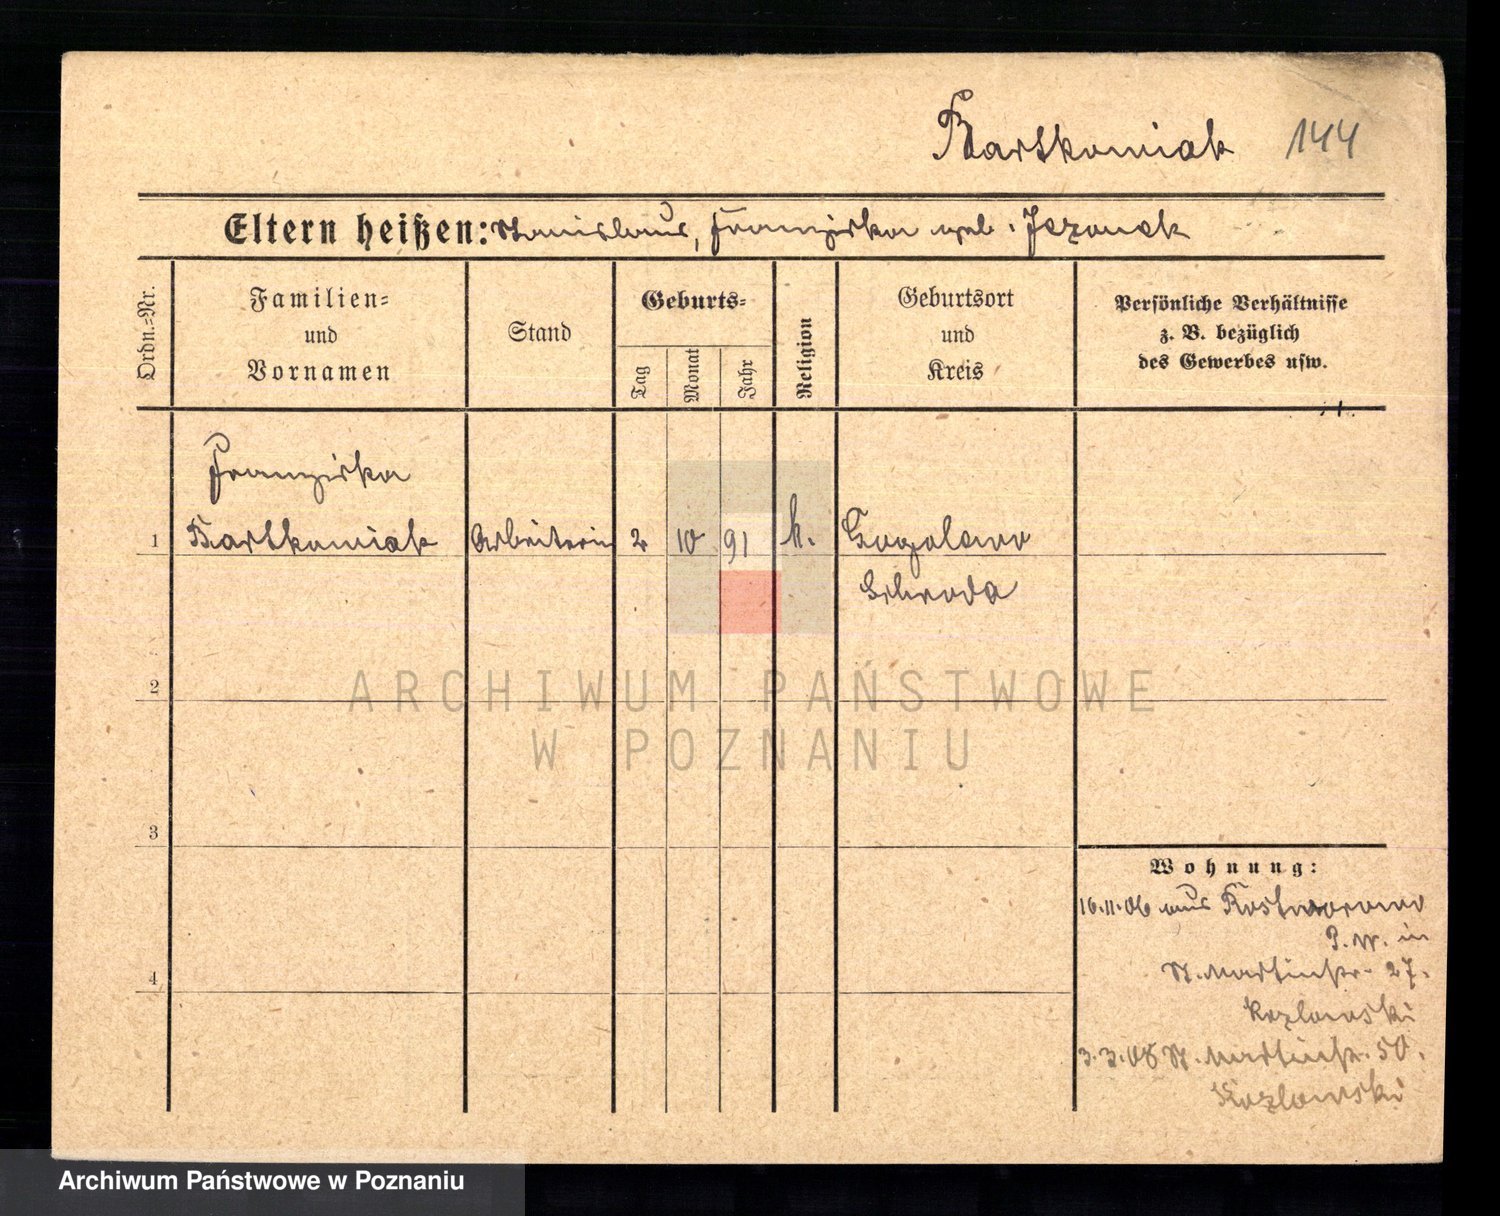 Bartkowiak 144
Eltern heißen: Stanislaus, Franziska geb.
Ordn.=Nr.
Familien=
und
Vornamen
Stand
Geburts=
Tag
Monat
Jahr
Religion
Geburtsort
und
Kreis
Persönliche Verhältnisse
z. B. bezüglich
des Gewerbes usw.
Franziska
1 Bartkowiak Arbeiterin 2 10 91 k.
Schroda
2
ARCHIWUM PAŃSTWOWE
W POZNANIU
3
Wohnung:
16.11.06 aus
P. W. in
St. Martinstr. 27.
4
Kozlowski
3.3.08 St. Martinstr. 50.
Kozlowski
Archiwum Państwowe w Poznaniu